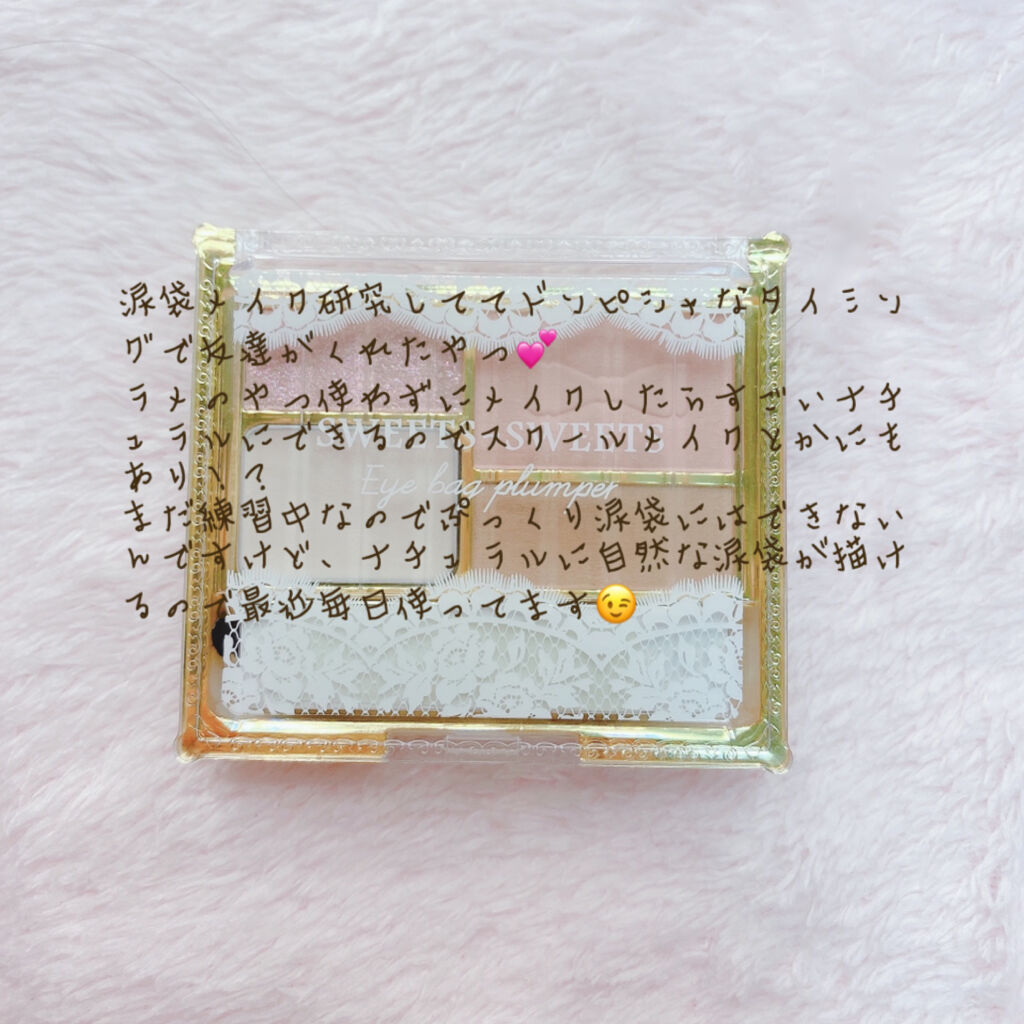 涙袋メイク研究しててドンピシャなタイミン
グで友達がくれたやつ💕
ラメのやつ使わずにメイクしたらすごいナチ
ュラルにできるのでスクールメイクとかにも
あり！？
まだ練習中なのでぷっくり涙袋にはできない
んですけど、ナチュラルに自然な涙袋が描け
るので最近毎日使ってます😉
SWEETS SWEETS
Eye bag plumper